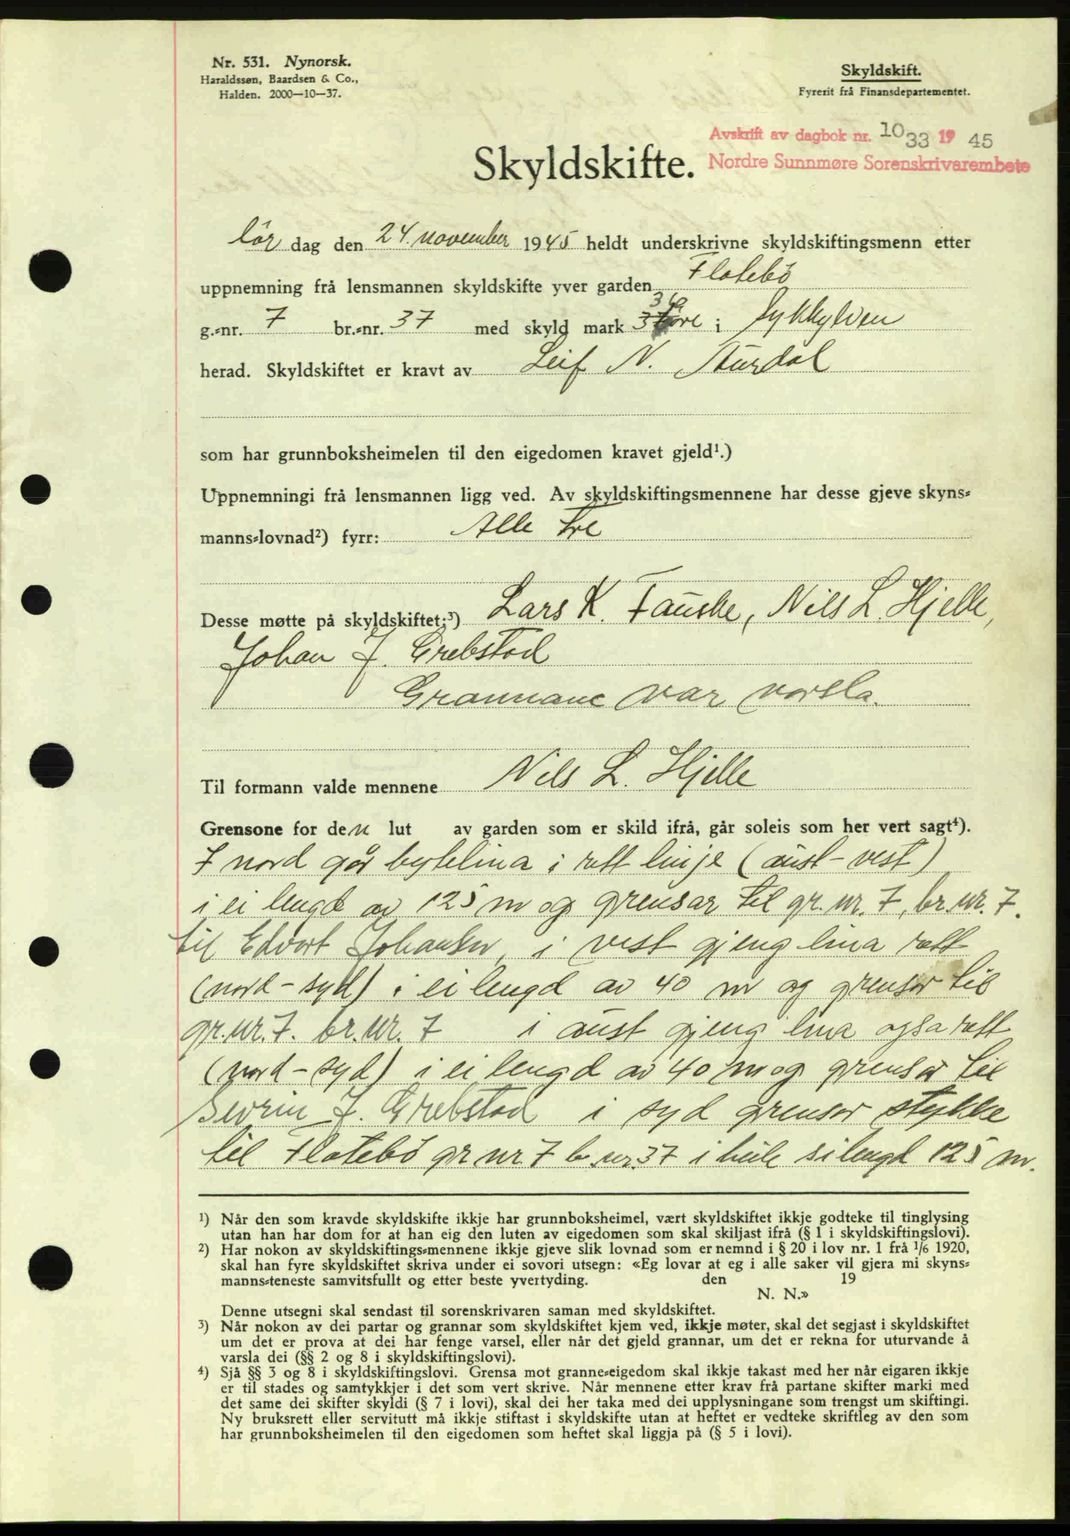 Nr. 531. Nynorsk.
Haraldssøn, Baardsen & Co.,
Halden. 2000—10—37.
Skyldskift.
Fyrerit frå Finansdepartementet.
Avskrift av dagbok nr. 1033 19 45
Nordre Sunnmøre Sorenskrivarembete
Skyldskifte.
lör dag den 24. november 1945 heldt underskrivne skyldskiftingsmenn etter
uppnemning frå lensmannen skyldskifte yver garden Flatebö
g.-nr. 7 br.-nr. 37 med skyld mark öre i Sykkylven
herad. Skyldskiftet er kravt av Leif N. Aurdal
som har grunnboksheimelen til den eigedomen kravet gjeld¹.)
Uppnemningi frå lensmannen ligg ved. Av skyldskiftingsmennene har desse gjeve skyns-
manns-lovnad²) fyrr: Alle tre
Desse møtte på skyldskiftet:³) Lars K. Fauske, Nils L. Hjelle,
Johan J. Grebstad
Grannane var varsla.
Til formann valde mennene Nils L. Hjelle
Grensone for den lut av garden som er skild ifrå, går soleis som her vert sagt⁴).
I nord går bytelina i rett linje (aust-vest)
i ei lengd av 125 m og grensar til gr. nr. 7, br. nr. 7.
til Edvart Johansen, i vest gjeng lina rett
(nord-syd) i ei lengd av 40 m og grensar til
gr. nr. 7. br. nr. 7 i aust gjeng lina også rett
(nord-syd) i ei lengd av 40 m og grensar til
Sevrin J. Grebstad i syd grensar stykke
til Flatebö gr nr 7 b. nr. 37 i heile si lengd 125 m.
¹) Når den som kravde skyldskifte ikkje har grunnboksheimel, vært skyldskiftet ikkje godteke til tinglysing
utan han har dom for at han eig den luten av eigedomen som skal skiljast ifrå (§ 1 i skyldskiftingslovi).
²) Har nokon av skyldskiftings-mennene ikkje gjeve slik lovnad som er nemnd i § 20 i lov nr. 1 frå ¹/₆ 1920,
skal han fyre skyldskiftet skriva under ei sovori utsegn: «Eg lovar at eg i alle saker vil gjera mi skyns-
manns-teneste samvitsfullt og etter beste yvertyding. den 19
N. N.»
Denne utsegni skal sendast til sorenskrivaren saman med skyldskiftet.
³) Når nokon av dei partar og grannar som skyldskiftet kjem ved, ikkje møter, skal det segjast i skyldskiftet
um det er prova at dei har fenge varsel, eller når det gjeld grannar, um det er rekna for uturvande å
varsla dei (§§ 2 og 8 i skyldskiftingslovi).
⁴) Sjå §§ 3 og 8 i skyldskiftingslovi. Grensa mot granne-eigedom skal ikkje takast med her når eigaren ikkje
er til stades og samtykkjer i det som vert skrive. Når mennene etter krav frå partane skifter marki med
det same dei skifter skyldi (§ 7 i lovi), skal dei her taka med dei upplysningane som trengst um skiftingi.
Ny bruksrett eller servitutt må ikkje stiftast i skyldskifte utan at heftet er vedteke skriftleg av den som
har grunnboksheimelen til den eigedomen som heftet skal liggja på (§ 5 i lovi).